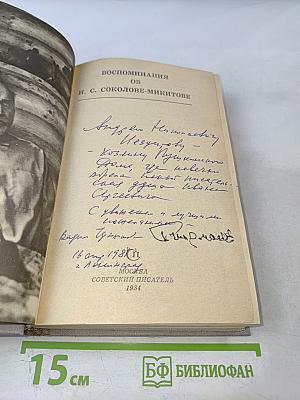 ВОСПОМИНАНИЯ
ОБ
И. С. СОКОЛОВЕ-МИКИТОВЕ
Андрею Николаевичу
Иезуитову —
- Хозяину Пушкинского
Дома, где навечно
душа Ивана
Сергеевича
С уважением и лучшими
пожеланиями
16 апр 198
г. Ленинград
МОСКВА
СОВЕТСКИЙ ПИСАТЕЛЬ
1984
15 см
БФ БИБЛИОФАН